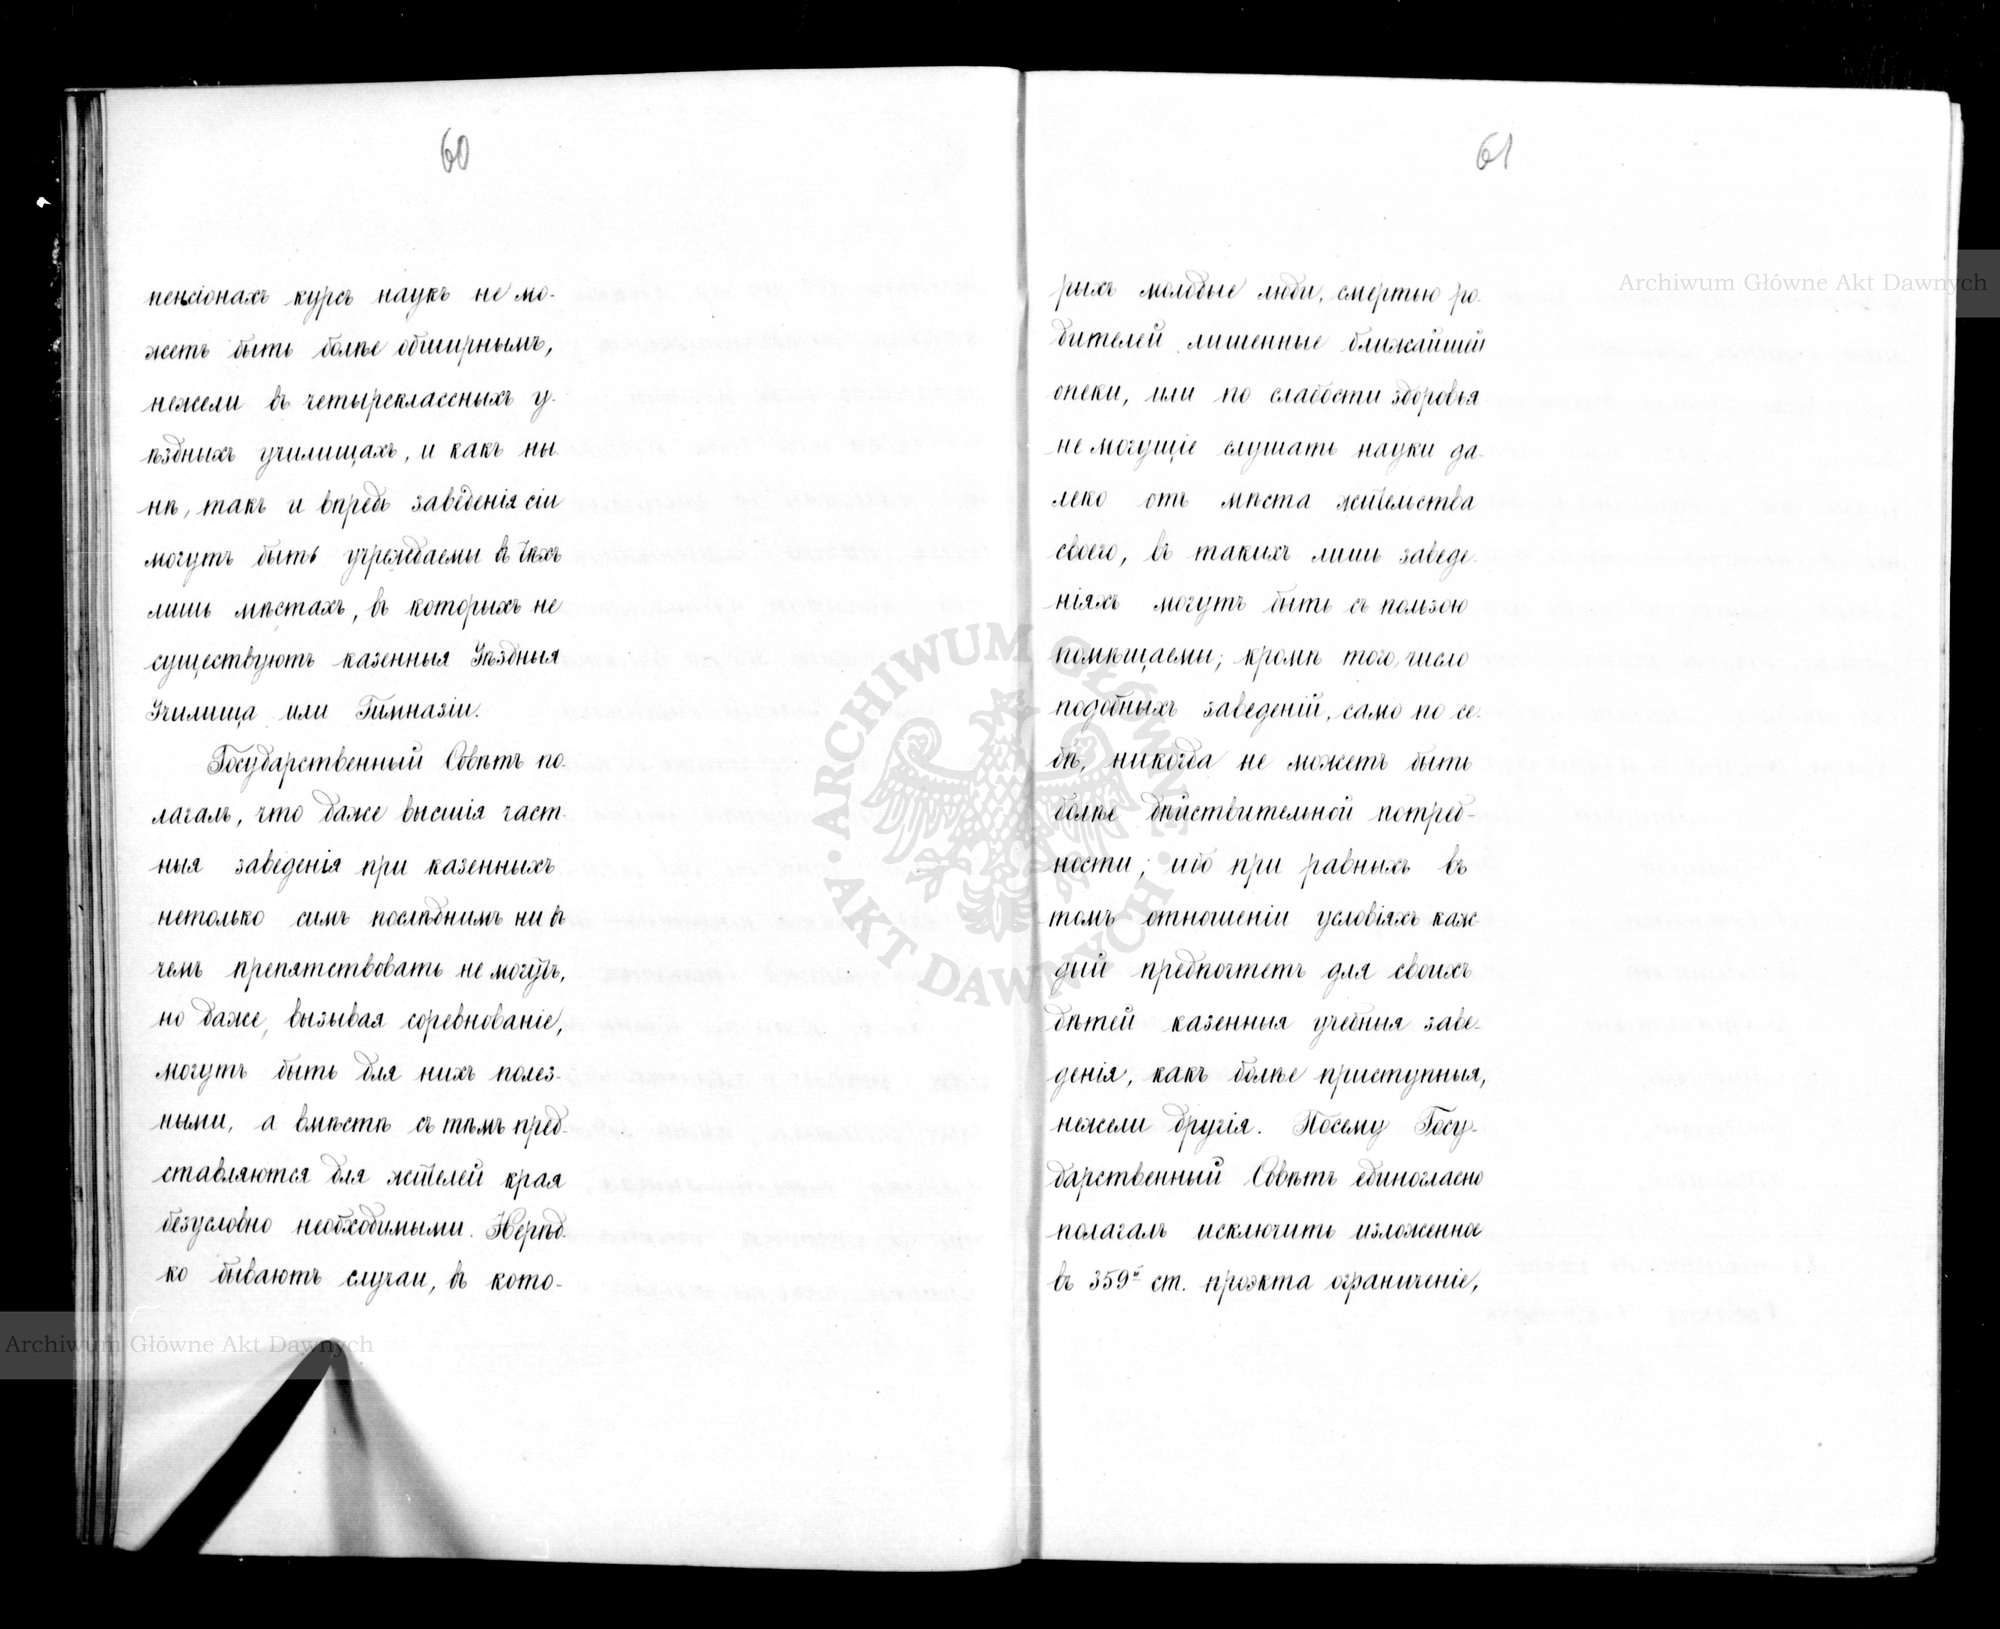 60
пенсіонахъ курсъ наукъ не мо-
жетъ быть болѣе обширнымъ,
нежели въ четыреклассныхъ у-
ѣздныхъ училищахъ, и какъ ны-
нѣ, такъ и впредь заведенія сіи
могутъ быть учреждаемы въ тѣхъ
лишь мѣстахъ, въ которыхъ не
существуютъ казенныя Уѣздныя
Училища или Гимназіи.
Государственный Совѣтъ по-
лагалъ, что даже высшія част-
ныя заведенія при казенныхъ
нетолько симъ послѣднимъ ни въ
чемъ препятствовать не могутъ,
но даже, вызывая соревнованіе,
могутъ быть для нихъ полез-
ными, а вмѣстѣ съ тѣмъ пред-
ставляются для жителей края
безусловно необходимыми. Нерѣд-
ко бываютъ случаи, въ кото-
61
рихъ молодые люди, смертью ро-
дителей лишенные ближайшей
опеки, или по слабости здоровья
не могущіе слушать науки да-
леко отъ мѣста жительства
своего, въ такихъ лишь заведе-
ніяхъ могутъ быть съ пользою
помѣщаемы; кромѣ того, число
подобныхъ заведеній, само по се-
бѣ, никогда не можетъ быть
болѣе дѣйствительной потреб-
ности; ибо при равныхъ въ
томъ отношеніи условіяхъ каж
дый предпочтетъ для своихъ
дѣтей казенныя учебныя заве-
денія, какъ болѣе приступныя,
нежели другія. Посему Госу-
дарственный Совѣтъ единогласно
полагалъ исключить изложенное
въ 359й ст. проэкта ограниченіе,
Archiwum Główne Akt Dawnych
ARCHIWUM GŁÓWNE AKT DAWNYCH
Archiwum Główne Akt Dawnych